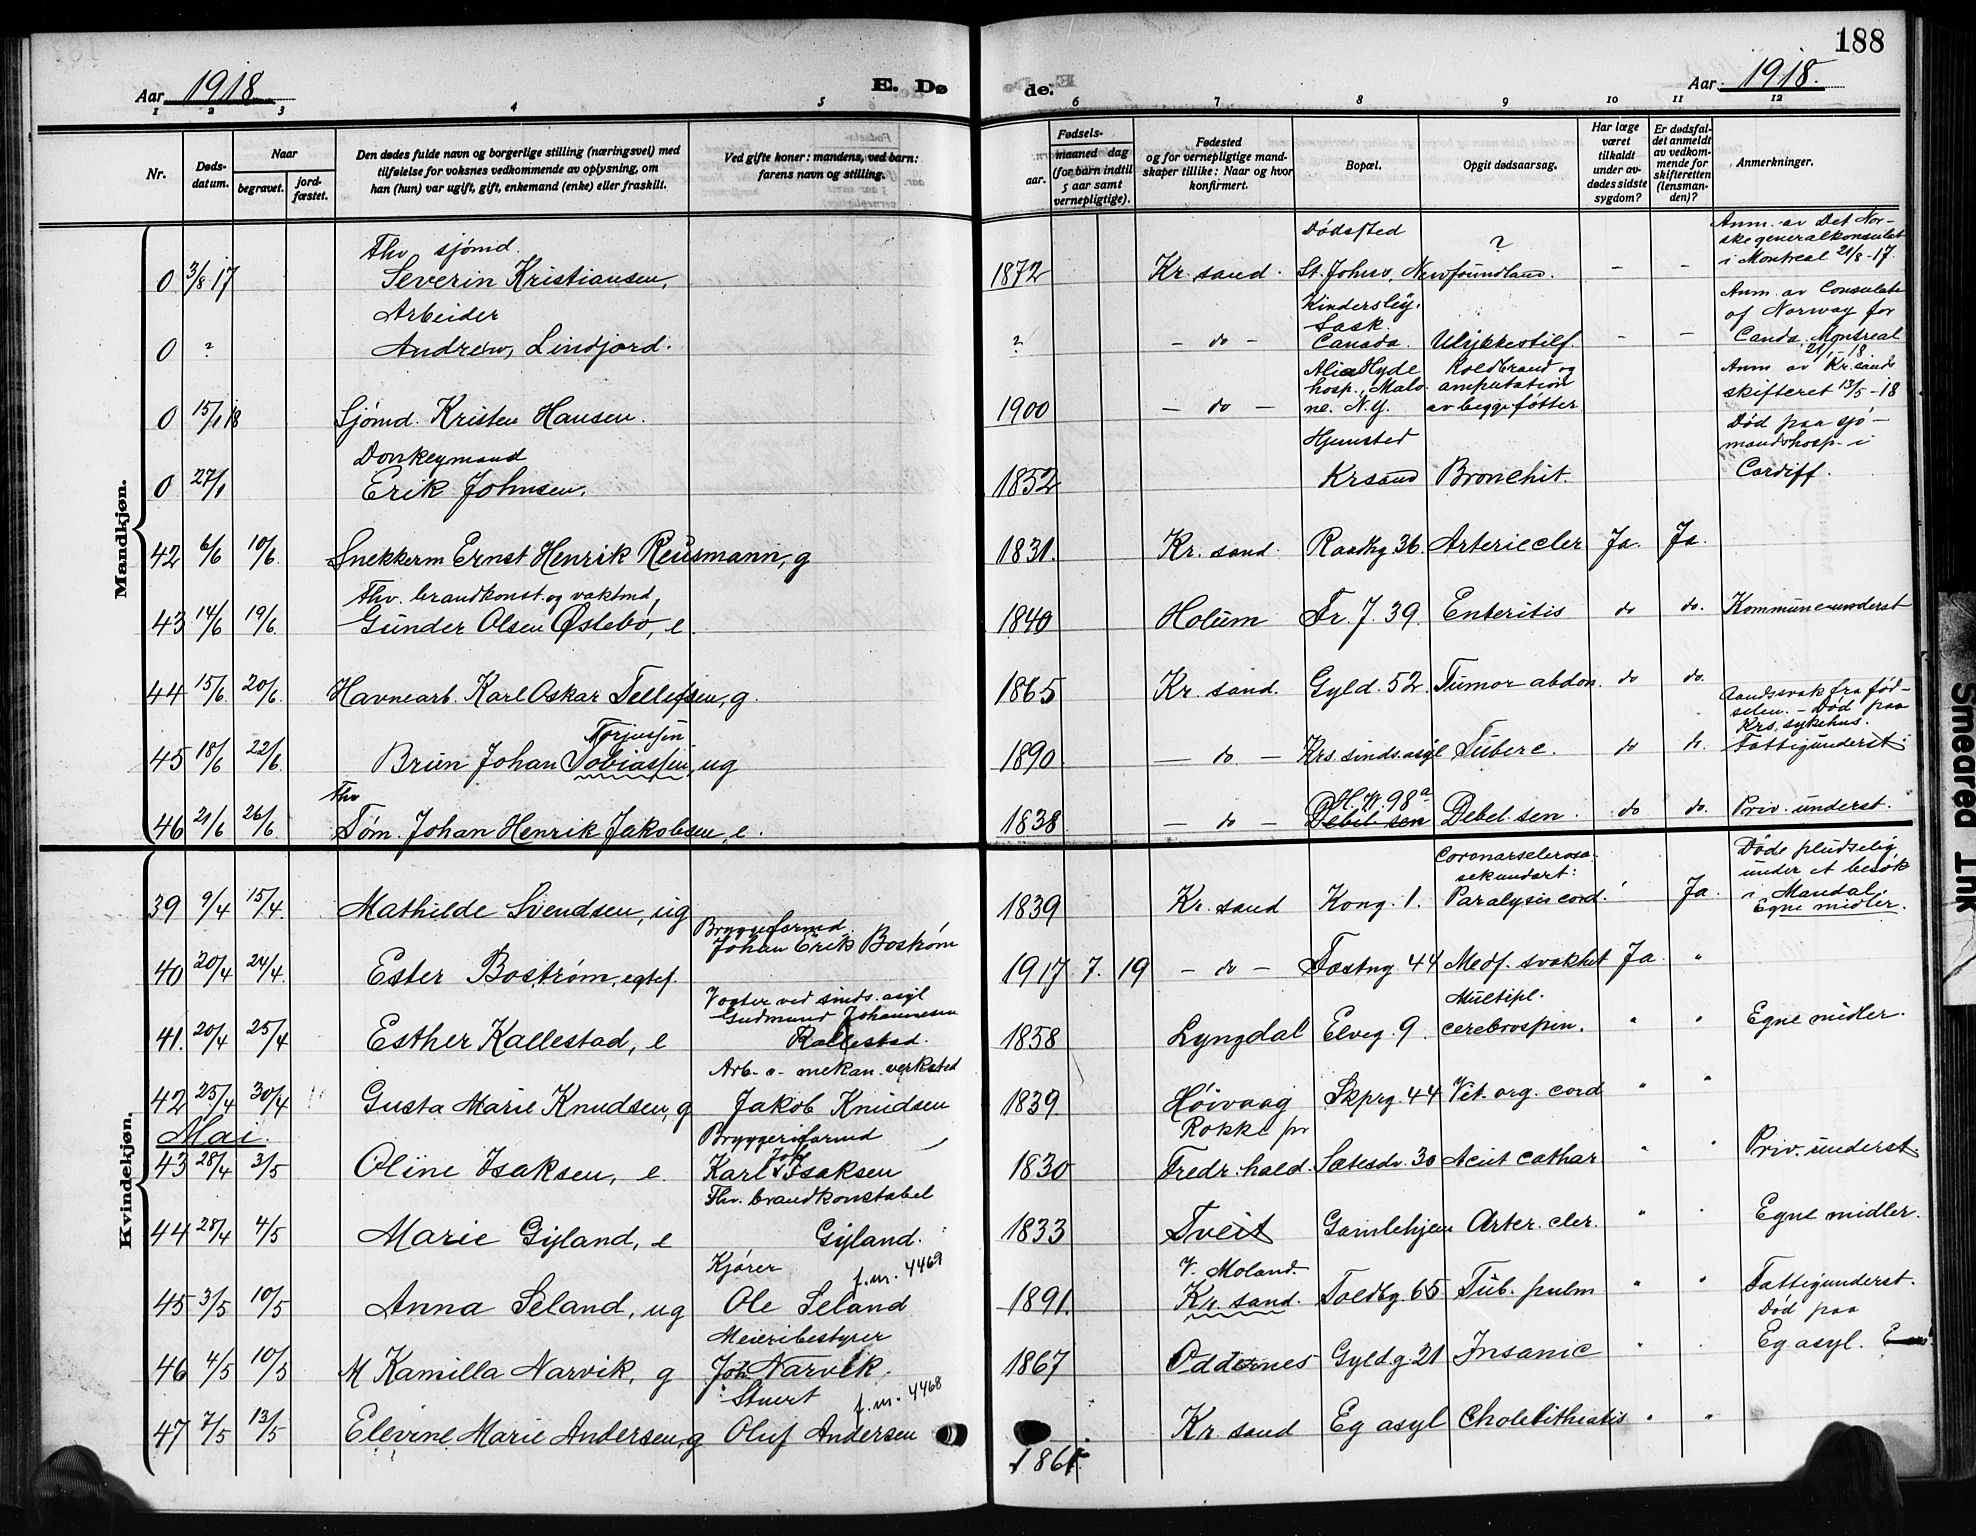 188
Aar 1918 E. Dø de. Aar 1918.
1 2 3 4 5 6 7 8 9 10 11 12
Nr.
Døds-
datum.
Naar
begravet.
jord-
fæstet.
Den dødes fulde navn og borgerlige stilling (næringsvei) med
tilføielse for voksnes vedkommende av oplysning, om
han (hun) var ugift, gift, enkemand (enke) eller fraskilt.
Ved gifte koner: mandens, ved barn:
farens navn og stilling.
Fødsels-
aar.
maaned dag
(for barn indtil
5 aar samt
vernepligtige).
Fødested
og for vernepligtige mand-
skaper tillike: Naar og hvor
konfirmert.
Bopæl.
Opgit dødsaarsag.
Har læge
været
tilkaldt
under av-
dødes sidste
sygdom?
Er dødsfal-
det anmeldt
av vedkom-
mende for
skifteretten
(lensman-
den)?
Anmerkninger.
Mandkjøn.
Fhv sjømd. Dødssted ? Anm. av Det Nor-
ske generalkonsulat
0 3/8 17 Severin Kristiansen, 1872 Kr. sand. St. Johns, Newfoundland. - - i Montreal 21/8-17.
Arbeider Kindersley, Sask. Anm. av Consulate
of Norway for
0 ? Andrew, Lindjord. ? - do - Canada. Ulykkestilf. - - Canda, Montreal
21/1-18
Alice Hyde Koldbrand og Anm av Kr.sands
hosp., Malo- amputation skifteret 13/5-18
0 15/1 18 Sjømd. Kristen Hansen. 1900 - do - ne. N.Y. av begge føtter
Donkeymand Hjemsted Død paa sjø-
mandshosp. i
0 27/1 Erik Johnsen. 1852 Krsand Bronchit. Cardiff.
42 6/6 10/6. Snekkerm Ernst Henrik Reusmann, g 1831. Kr. sand. Raadhg 36. Arteriecler Ja. Ja.
Fhv. brandkonst. og vaktmd,
43 14/6 19/6. Gunder Olsen Østebø, e. 1840 Holum Fr. J. 39. Enteritis do do. Kommuneunderst
44 15/6. 20/6. Havnearb. Karl Oskar Tellefsen, g. 1865 Kr. sand. Gyld. 52. Tumor abdom. do do.
Torjussen Aandssvak fra fød-
selen. - Død paa
Krs. sykehus.
45 18/6 22/6. Brun Johan Tobiassen, ug 1890 - do - Krs. sinds.asyl Tuberc. do do. Fattigunderst.
Fhv H. W. 98a
46 21/6 26/6 Tøm. Johan Henrik Jakobsen, e. 1838 - do - Debil sen Debel. sen. do do. Priv. underst.
Kvindekjøn.
Coronarsclerosa. Døde pludselig
sekundært: under et besøk
39 9/4 15/4. Mathilde Svendsen, ug 1839 Kr. sand Kong. 1. Paralysis cord. Ja. i Mandal.
Egne midler.
Bryggeformd.
Johan Erik Bostrøm
40 20/4 24/4. Ester Bostrøm, egtef. 1917 7. 19 - do - Fæstng. 44 Medf. svakhet Ja "
Vogter ved sinds. asyl Multipl.
Gudmund Johannesen
41. 20/4 25/4 Esther Kallestad, e Kallestad. 1858 Lyngdal Elveg. 9. cerebrospin. " " Egne midler.
Arb. v. mekan. verksted
42 25/4 30/4 Gusta Marie Knudsen, g Jakob Knudsen 1839 Høivaag Skprg. 44 Vit. org. cord " "
Mai. Bryggeriformd Rokke pr
43 28/4 3/5 Oline Isaksen, e. Karl Joh Isaksen 1830 Fredr. hald. Sætesdv. 30 Acut cathar " " Priv. underst
Fhv. brandkonstabel
44 28/4 4/5 Marie Gyland, e Gyland. 1833 Tveit Gamlehjem Arter. cler. " " Egne midler.
Kjører f.m. 4469 V. Moland.
45 3/5 10/5 Anna Seland, ug Ole Seland 1891. Kr. sand. Toldbg. 65 Tub. pulm " " Fattigunderst.
Meieribestyrer Død paa
46 4/5 10/5 M Kamilla Narvik, g Joh Narvik. 1867 Oddernes Gyldg. 21 Insanie " " Eg asyl.
Stuert f.m. 4468
47 7/5 13/5 Elevine Marie Andersen, g Oluf Andersen Kr. sand Eg asyl Cholelithiatis " "
1861
Smeared Ink